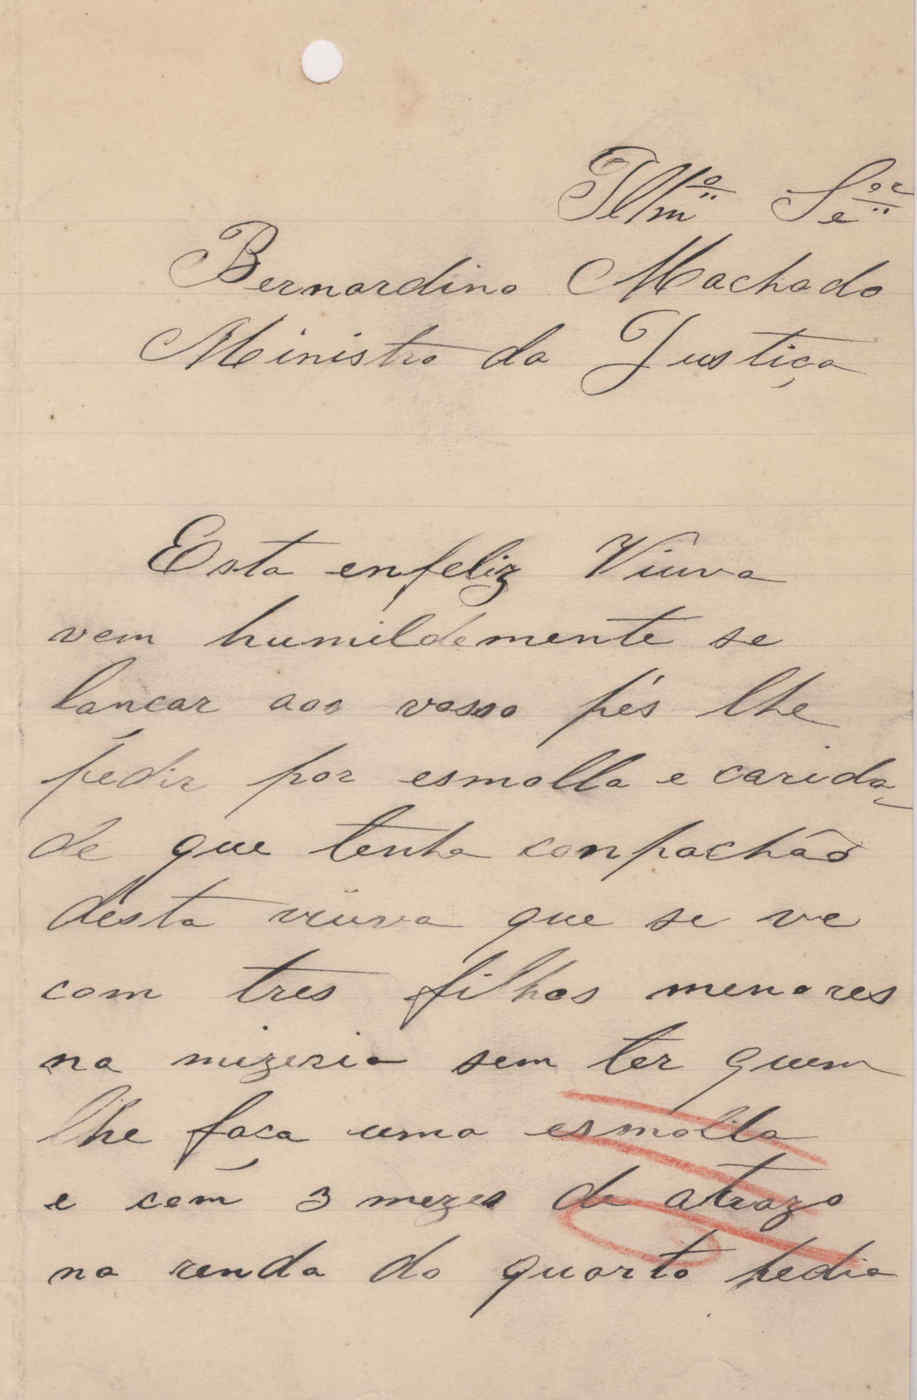 Illmº Seºr
Bernardino Machado
Ministro da Justiça
Esta enfeliz Viuva
vem humildemente se
lançar aos vosso pés lhe
pedir por esmolla e carida-
de que tenha conpachão
desta viuva que se ve
com tres filhos menores
na mizeria sem ter quem
lhe faça uma esmolla
e com 3 mezes de atrazo
na renda do quarto pedia